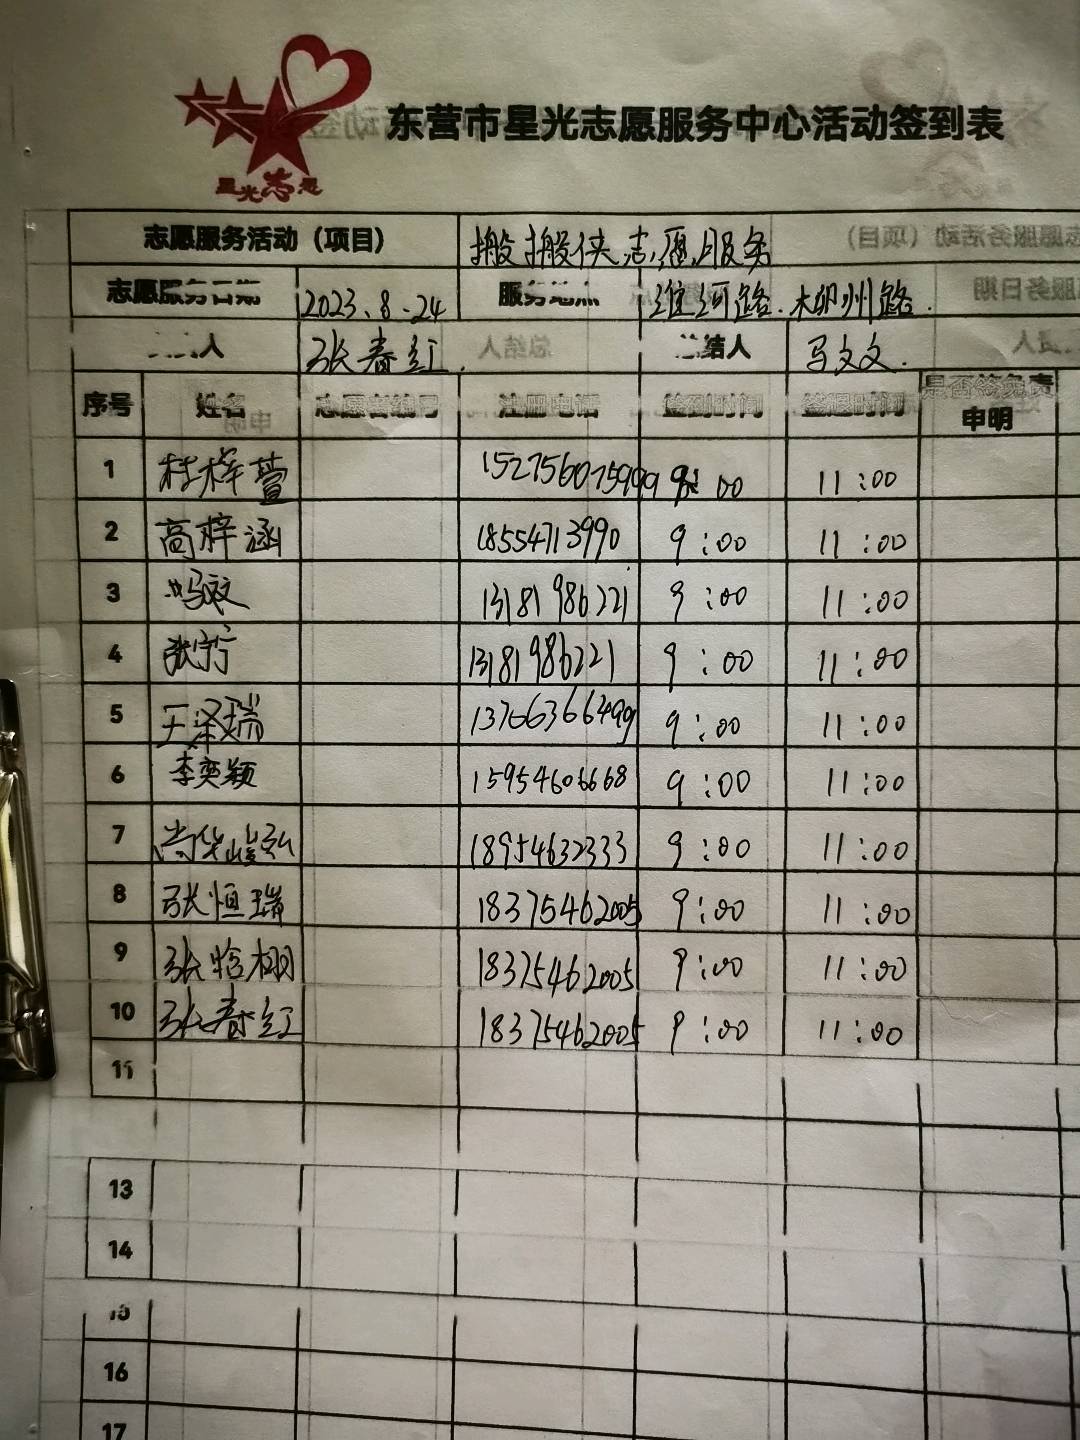 星光志愿
东营市星光志愿服务中心活动签到表
志愿服务活动（项目） 搬搬侠志愿服务
志愿服务日期 2023.8.24 服务地点 潍河路.柳州路.
人 张春红. 总结人 马文文.
序号 姓名 志愿者编号 注册电话 签到时间 签退时间 是否签免责申明
1 杜梓萱 9:00 11:00
2 高梓涵 18554713990 9:00 11:00
3 13181986221 9:00 11:00
4 张宁 13181986221 9:00 11:00
5 王泽瑞 9:00 11:00
6 李奕颖 15954606668 9:00 11:00
7 尚华峻弘 18954632333 9:00 11:00
8 张恒瑞 18375462005 9:00 11:00
9 张晗栩 18375462005 9:00 11:00
10 张春红 18375462005 9:00 11:00
11
13
14
15
16
17